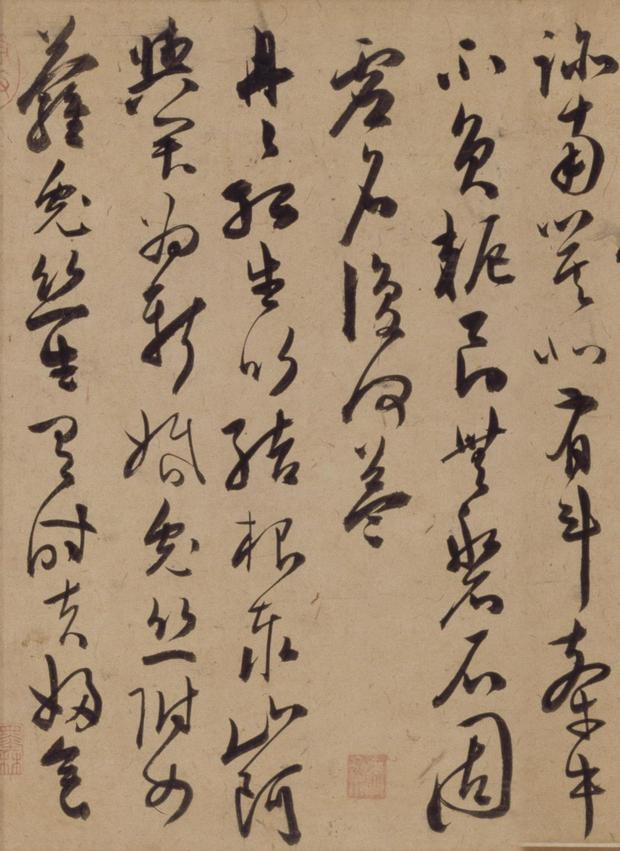 跡南箕北有斗牽牛
不負軛良無磐石固
虛名復何益
冉々孤生竹結根泰山阿
與君為新婚兔絲附女
蘿兔絲生有時夫婦會